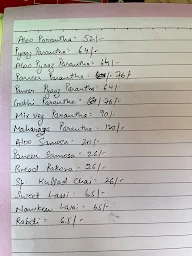 Aloo Parantha - 52/-
Pyaaz Parantha - 64/-
Aloo Pyaaz Parantha - 64/-
Paneer Parantha - 76/-
Paneer Pyaaz Parantha - 64/-
Gobhi Parantha - 76/-
Mix Veg Parantha - 90/-
Maharaja Parantha - 120/-
Aloo Samosa - 20/-
Paneer Samosa - 26/-
Bread Pakora - 26/-
Spl. Kullad Chai - 26/-
Sweet Lassi - 65/-
Namkeen Lassi - 65/-
Rabdi - 65/-